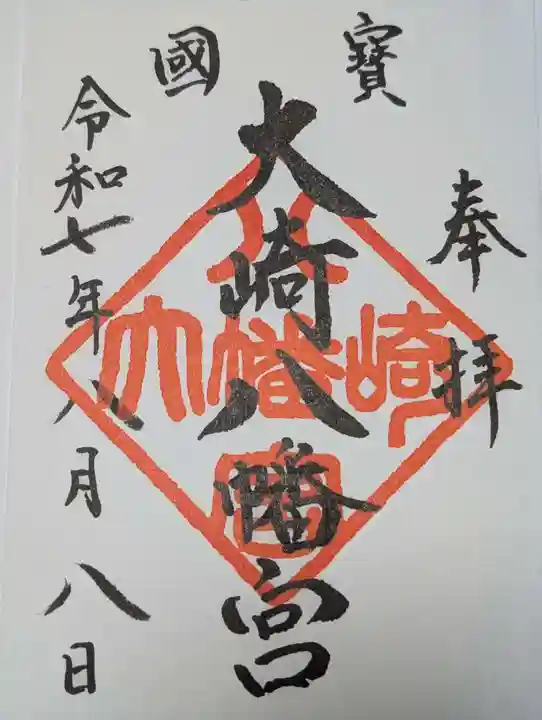 寶國
奉拝
大崎八幡宮
令和七年八月八日
大崎八幡宮